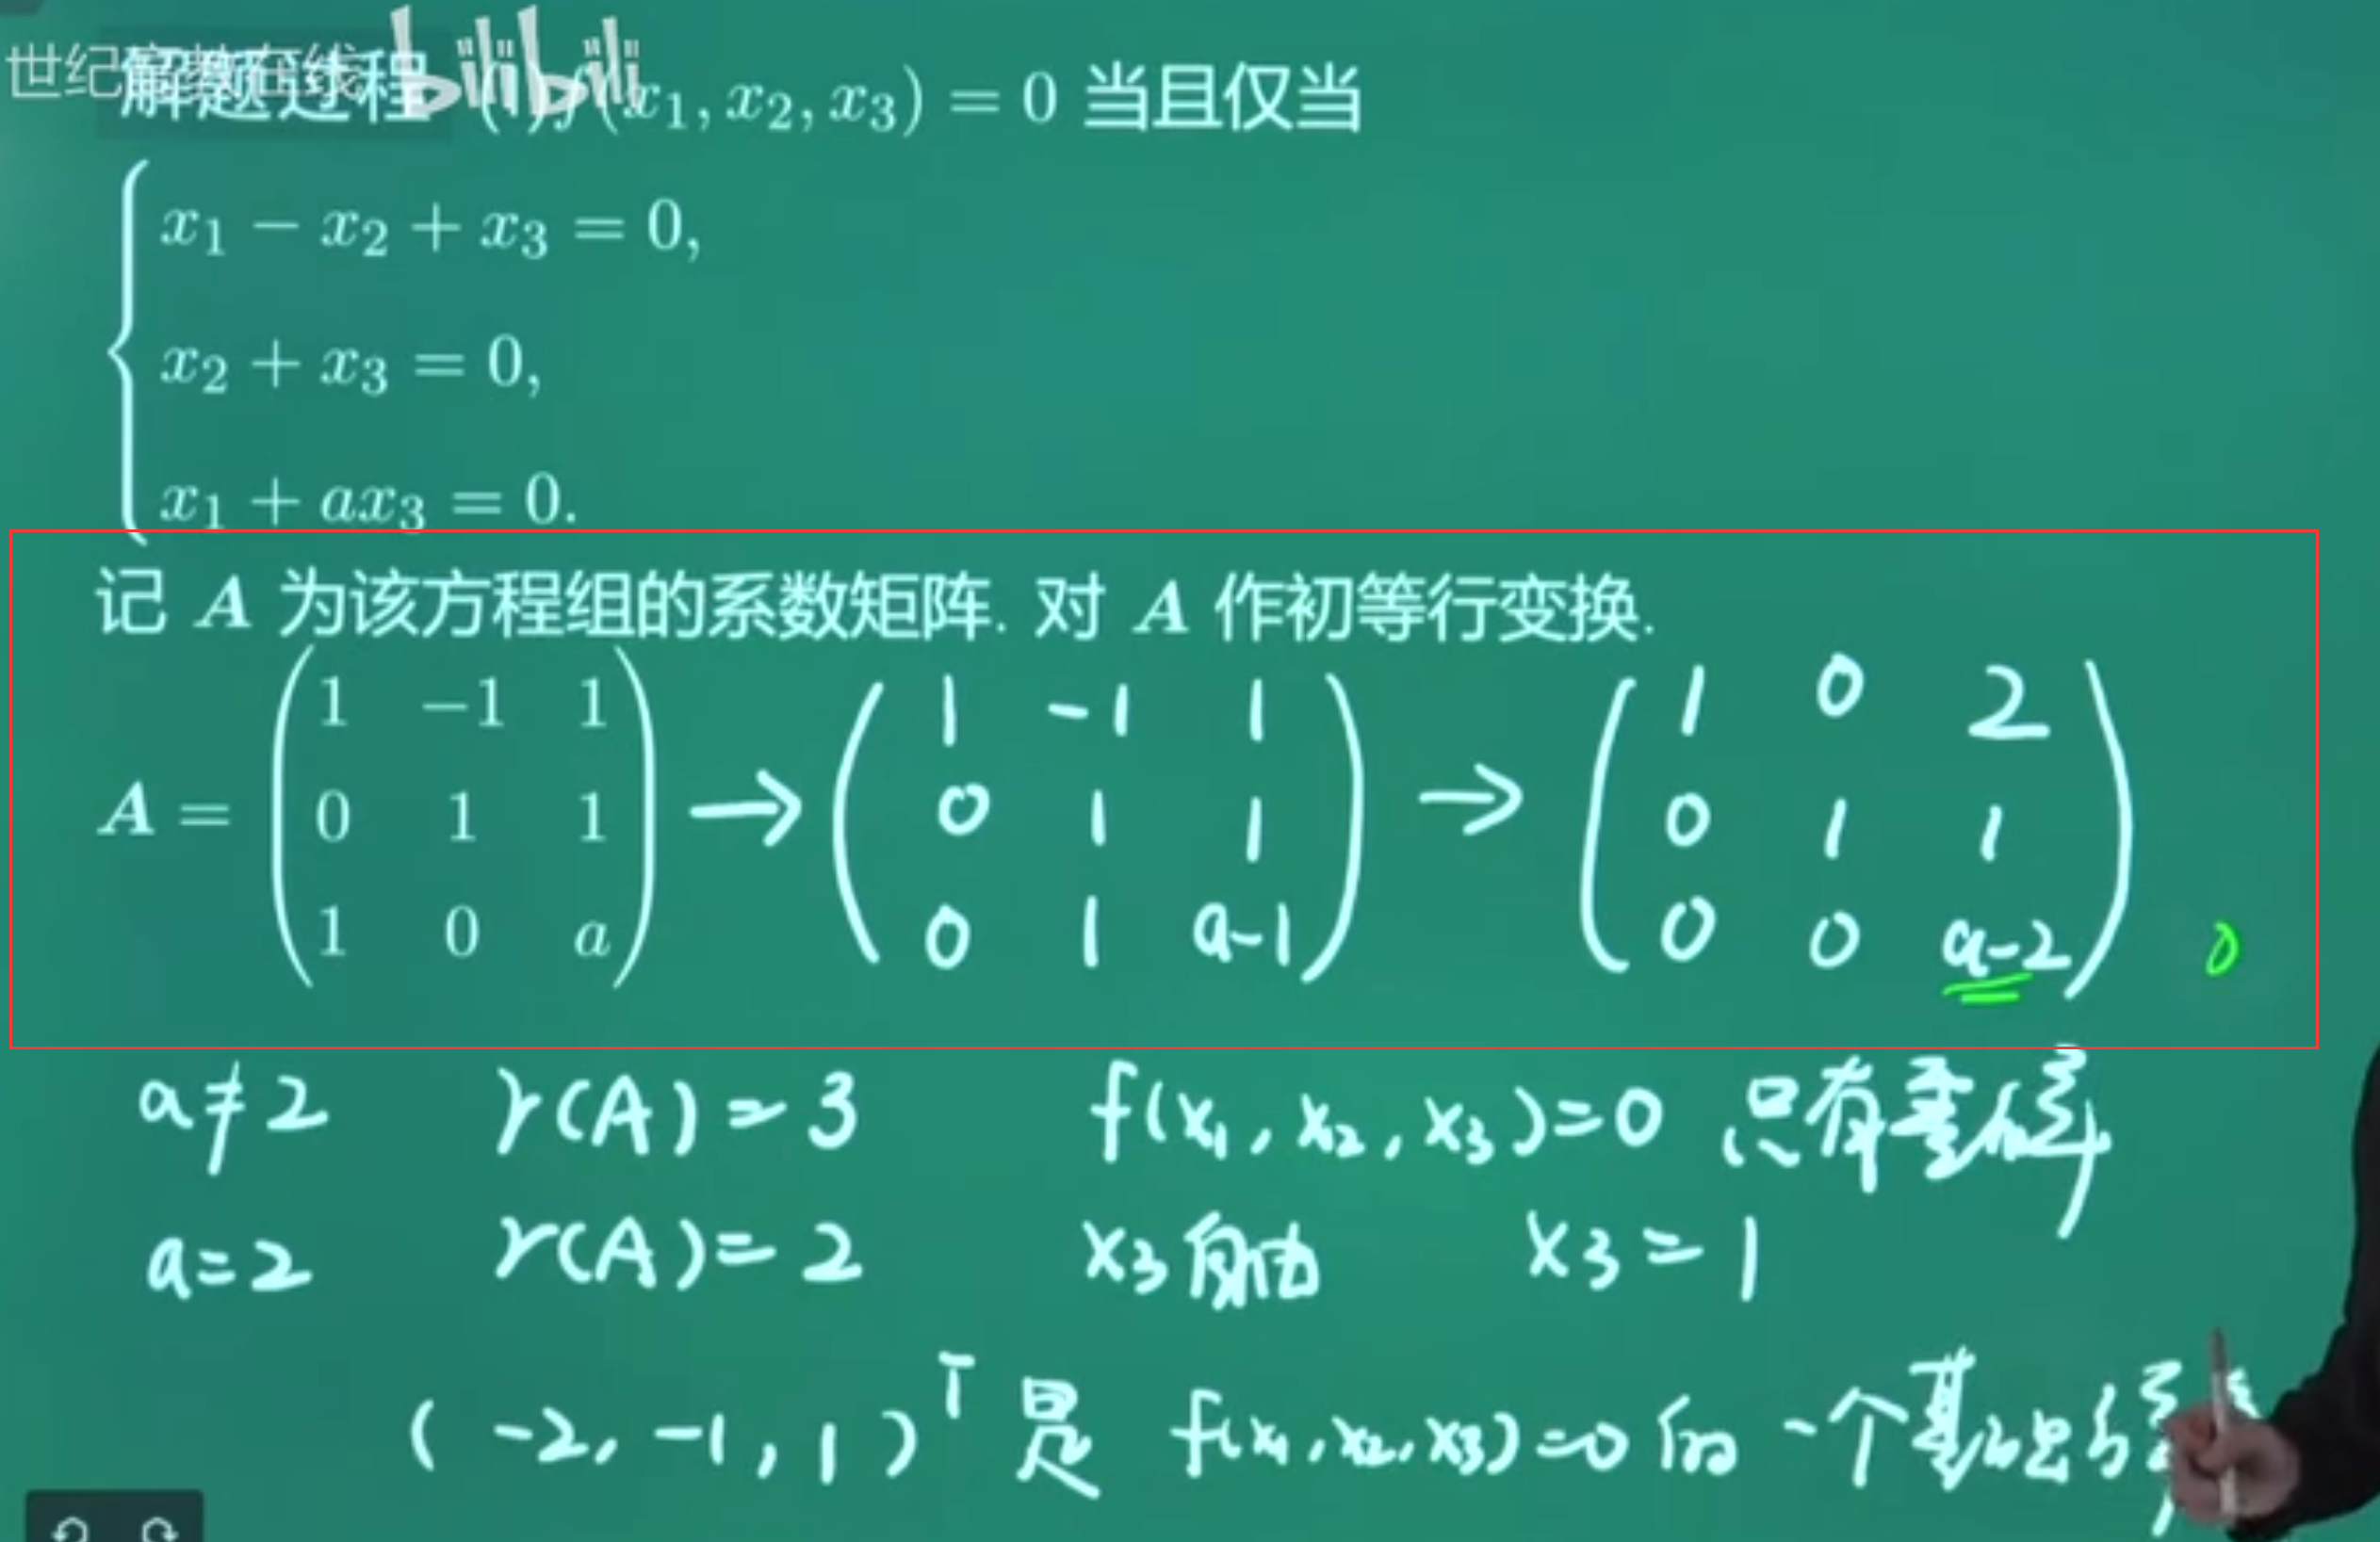 世纪高教在线 bilibili
解题过程 (1) f(x₁, x₂, x₃) = 0 当且仅当
x₁ − x₂ + x₃ = 0,
x₂ + x₃ = 0,
x₁ + ax₃ = 0.
记 A 为该方程组的系数矩阵. 对 A 作初等行变换.
A = (1 −1 1; 0 1 1; 1 0 a) → (1 -1 1; 0 1 1; 0 1 a-1) → (1 0 2; 0 1 1; 0 0 a-2) 0
a≠2 r(A)=3 f(x₁, x₂, x₃)=0 只有零解
a=2 r(A)=2 x₃自由 x₃=1
(-2, -1, 1)ᵀ 是 f(x₁, x₂, x₃)=0 的一个基础解系